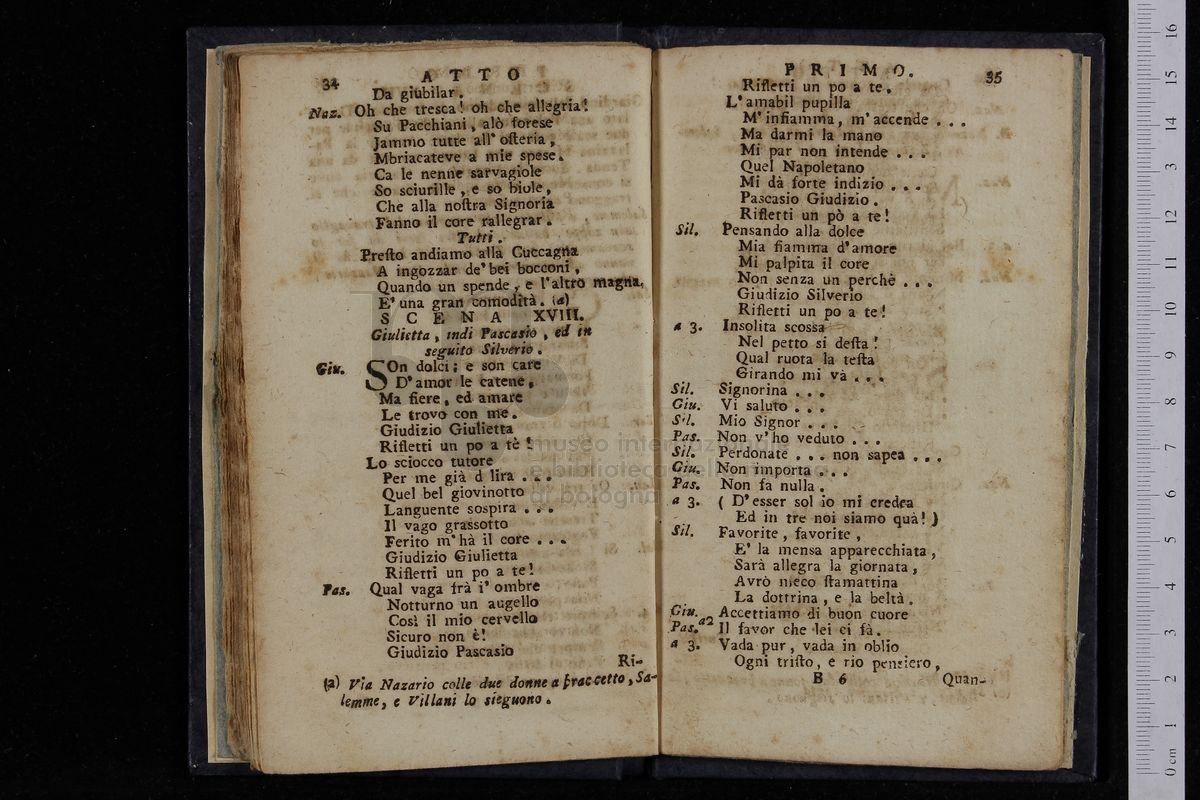 34 ATTO
Da giubilar.
Naz. Oh che tresca! oh che allegria!
Su Pacchiani, alò forese
Jammo tutte all' osteria,
Mbriacateve a mie spese.
Ca le nenne sarvagiole
So sciurille, e so biole,
Che alla nostra Signoria
Fanno il core rallegrar.
Tutti.
Presto andiamo alla Cuccagna
A ingozzar de' bei bocconi,
Quando un spende, e l'altro magna,
E' una gran comodità. (a)
SCENA XVIII.
Giulietta, indi Pascasio, ed in
seguito Silverio.
Giu. SOn dolci; e son care
D'amor le catene,
Ma fiere, ed amare
Le trovo con me.
Giudizio Giulietta
Rifletti un po a tè!
Lo sciocco tutore
Per me già d lira ...
Quel bel giovinotto
Languente sospira ...
Il vago grassotto
Ferito m'hà il core ...
Giudizio Giulietta
Rifletti un po a te!
Pas. Qual vaga frà l' ombre
Notturno un augello
Così il mio cervello
Sicuro non è!
Giudizio Pascasio
Ri-
(a) Via Nazario colle due donne a braccetto, Sa-
lemme, e Villani lo sieguono.
PRIMO. 35
Rifletti un po a te.
L'amabil pupilla
M'infiamma, m'accende ...
Ma darmi la mano
Mi par non intende ...
Quel Napoletano
Mi dà forte indizio ...
Pascasio Giudizio.
Rifletti un pò a te!
Sil. Pensando alla dolce
Mia fiamma d'amore
Mi palpita il core
Non senza un perchè ...
Giudizio Silverio
Rifletti un po a te!
a 3. Insolita scossa
Nel petto si desta!
Qual ruota la testa
Girando mi và ...
Sil. Signorina ...
Giu. Vi saluto ...
Sil. Mio Signor ...
Pas. Non v'ho veduto ...
Sil. Perdonate ... non sapea ...
Giu. Non importa ...
Pas. Non fa nulla.
a 3. ( D'esser sol io mi credea
Ed in tre noi siamo quà! )
Sil. Favorite, favorite,
E' la mensa apparecchiata,
Sarà allegra la giornata,
Avrò meco stamattina
La dottrina, e la beltà.
Giu. Accettiamo di buon cuore
Pas. a2 Il favor che lei ci fà.
a 3. Vada pur, vada in oblio
Ogni tristo, e rio pensiero,
B 6 Quan-
museo internazionale
e biblioteca della musica
di bologna
0 cm 1 2 3 4 5 6 7 8 9 10 11 12 3 14 15 16